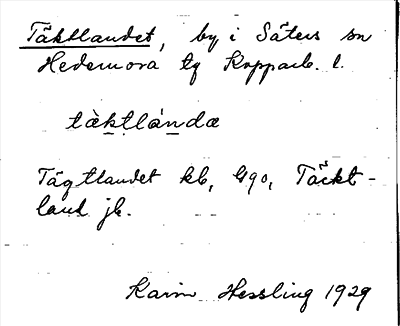 Täktlandet, by i Säters sn
Hedemora tg Kopparb. l.
tàktlánda
Tägtlandet kb, Gqo, Täckt-
land jb.
Karin Hessling 1929